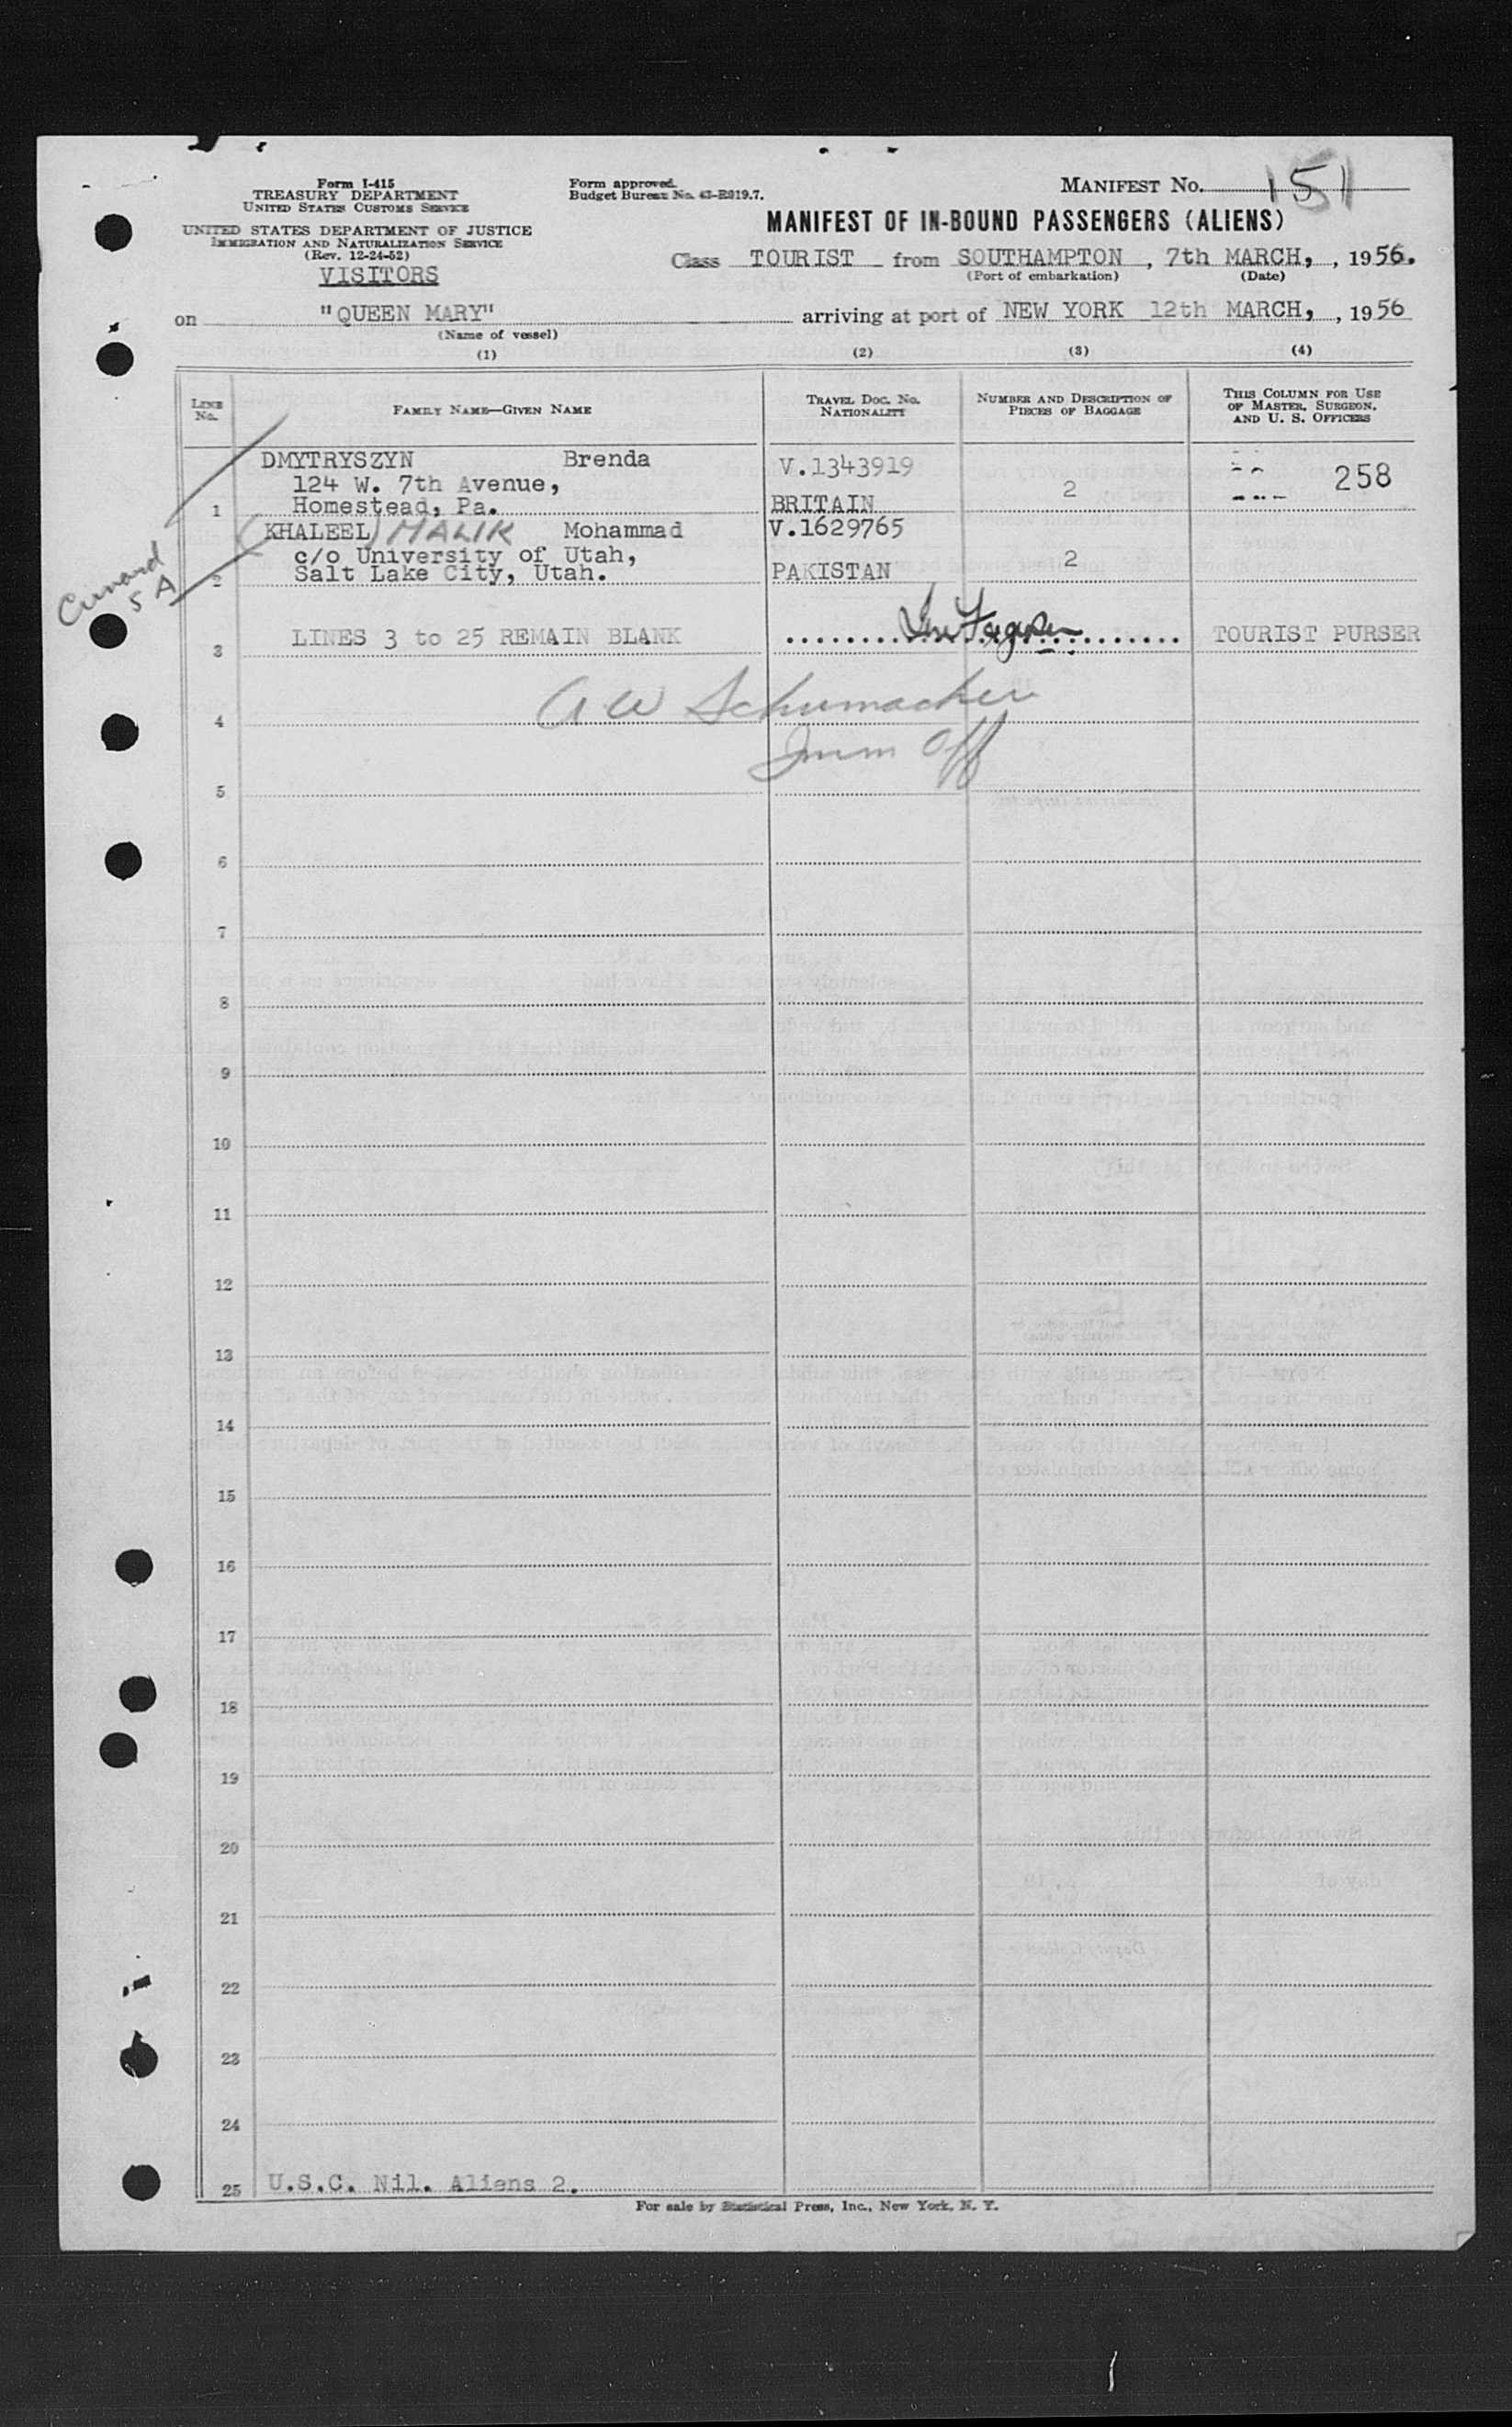 Form I-415
TREASURY DEPARTMENT
UNITED STATES CUSTOMS SERVICE
UNITED STATES DEPARTMENT OF JUSTICE
IMMIGRATION AND NATURALIZATION SERVICE
(Rev. 12-24-52)
VISITORS
Form approved.
Budget Bureau No. 43-R019.7.
MANIFEST NO. 151
MANIFEST OF IN-BOUND PASSENGERS (ALIENS)
Class TOURIST from SOUTHAMPTON, 7th MARCH, , 1956.
(Port of embarkation) (Date)
on "QUEEN MARY" arriving at port of NEW YORK 12th MARCH, , 1956
(Name of vessel)
(1) (2) (3) (4)
LINE No. FAMILY NAME—GIVEN NAME TRAVEL DOC. NO. NATIONALITY NUMBER AND DESCRIPTION OF PIECES OF BAGGAGE THIS COLUMN FOR USE OF MASTER, SURGEON, AND U. S. OFFICERS
DMYTRYSZYN Brenda V.1343919
124 W. 7th Avenue, 2 258
1 Homestead, Pa. BRITAIN
(KHALEEL) MALIK Mohammad V.1629765
c/o University of Utah, 2
2 Salt Lake City, Utah. PAKISTAN
Cunard
5 A
3 LINES 3 to 25 REMAIN BLANK TOURIST PURSER
A W Schumacher
4
Imm Off
5
6
7
8
9
10
11
12
13
14
15
16
17
18
19
20
21
22
23
24
25 U.S.C. Nil. Aliens 2.
For sale by Statistical Press, Inc., New York, N. Y.